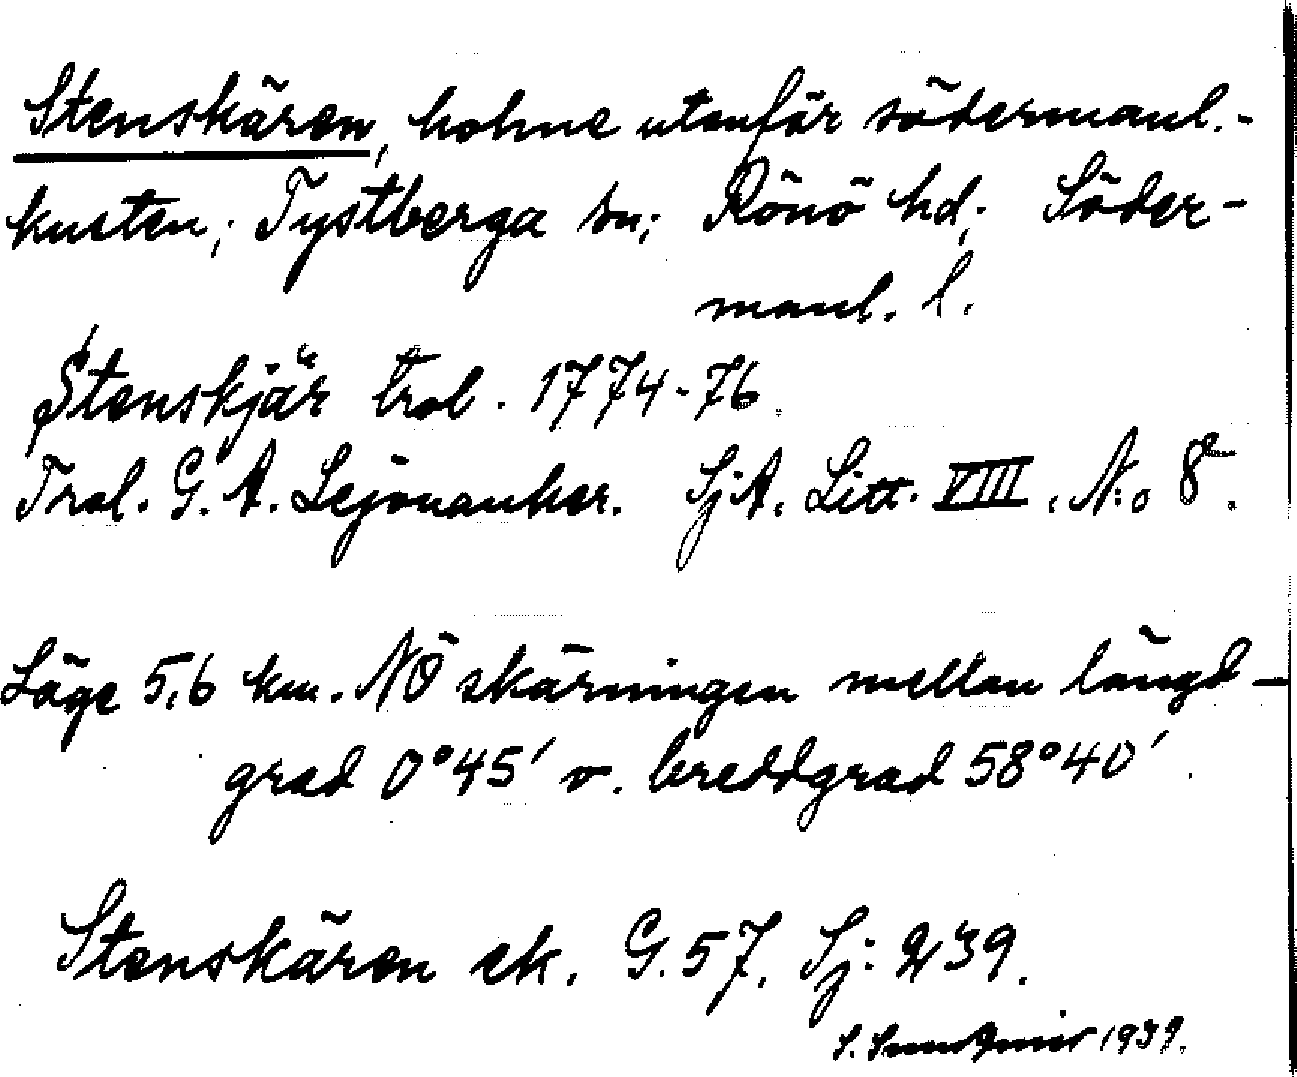 Stenskären, holme utanför södermanl.-
kusten; Tystberga sn; Rönö hd; Söder-
manl. l.
Stenskjär trol. 1774-76.
Trol. G. A. Lejonanker. SjA. Litt. VIII. N:o 8.
Läge 5,6 km. NÖ skärningen mellan längd-
grad 0°45' v. breddgrad 58°40'.
Stenskären ek. G. 57. Sj: 239.
S. 1939.